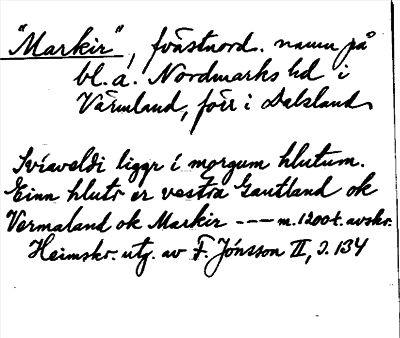 "Markir", fvästnord. namn på
bl. a. Nordmarks hd i
Värmland, förr i Dalsland
Svíaveldi liggr í morgum hlutum.
Einn hlutr er vestra Gautland ok
Vermaland ok Markir --- m. 1200 t. avskr.
Heimskr. utg. av F. Jónsson II, s. 134